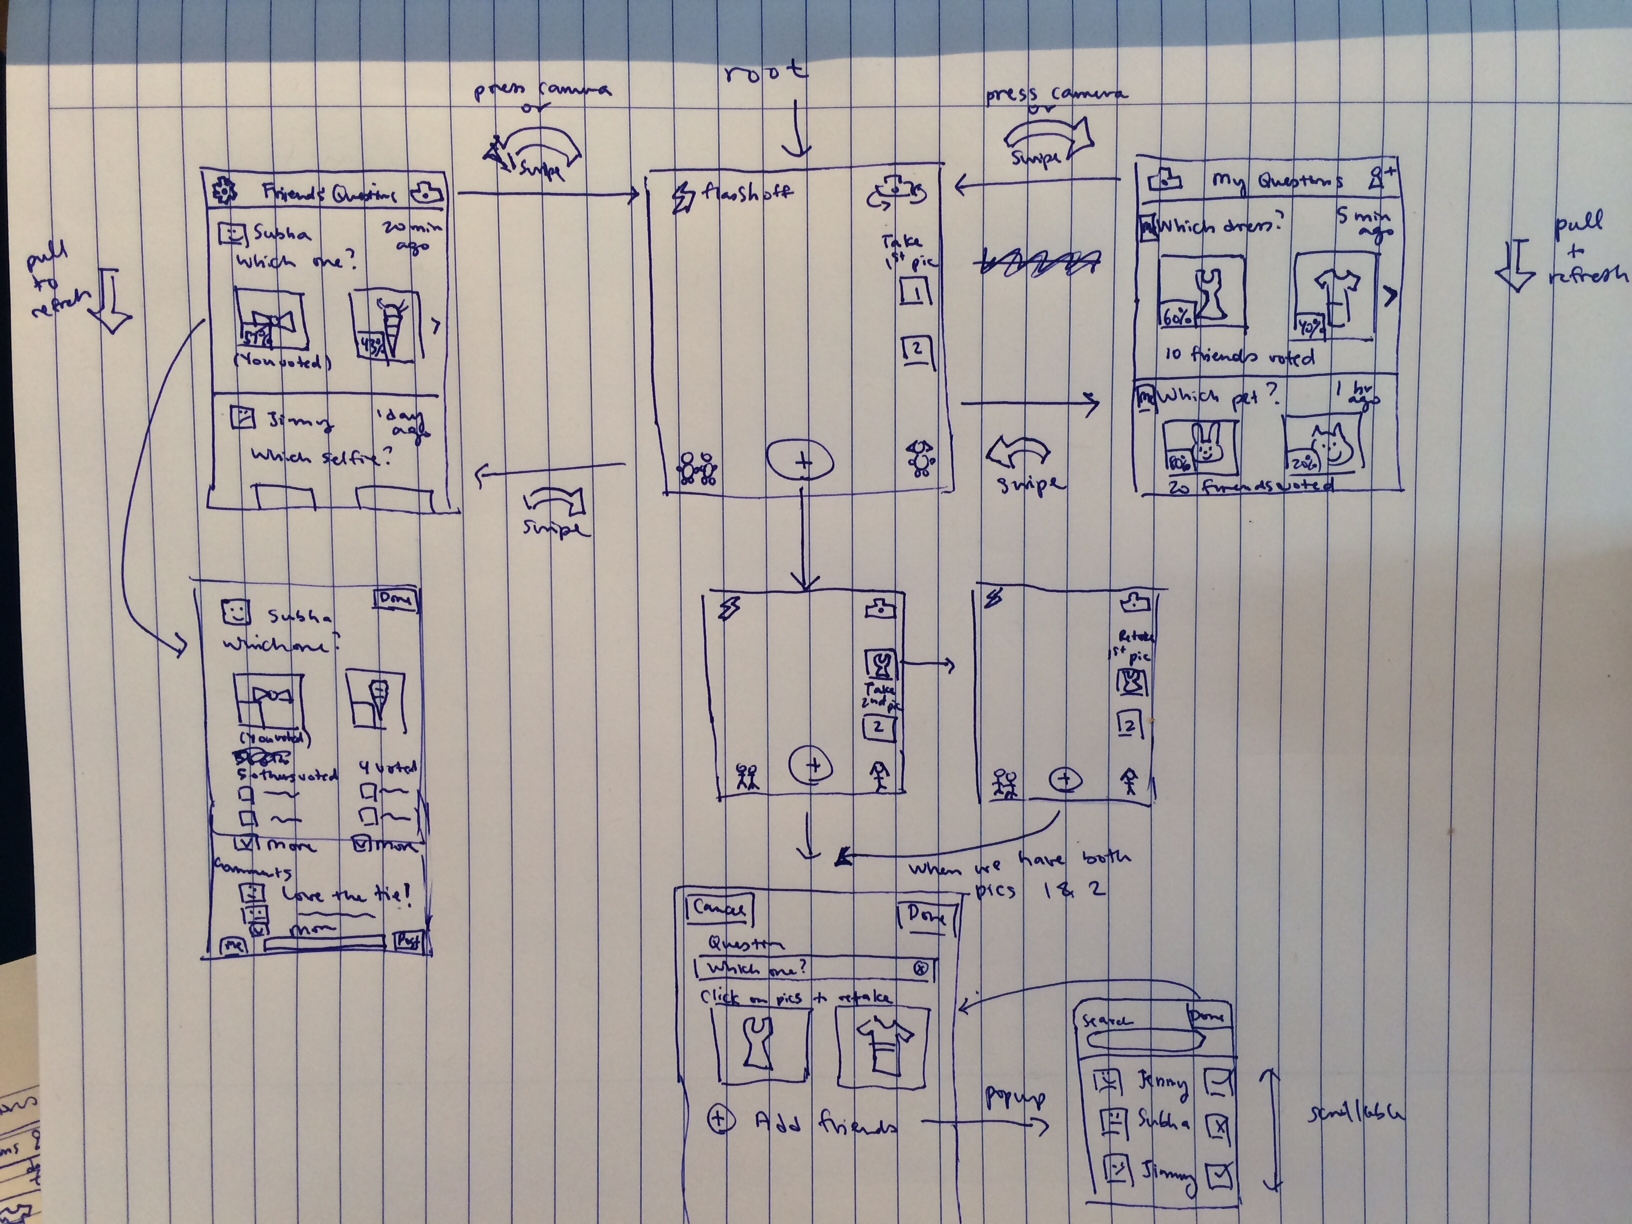 root
press camera
or
Swipe
press camera
or
Swipe
pull
to
refresh
Friends' Questions
Subha
20 min
ago
Which one?
57%
43%
(You voted)
Jimmy
1 day
ago
Which selfie?
flash off
Take
1st pic
1
2
Swipe
Swipe
My Questions
me
Which dress?
5 min
ago
60%
40%
10 friends voted
me
Which pet?
1 hr
ago
80%
20%
20 friends voted
pull
to
refresh
Done
Subha
Which one?
(You voted)
5 others voted
4 voted
more
more
Comments
Love the tie!
more
me
Post
Take
2nd pic
2
Retake
1st pic
2
when we have both
pics 1 & 2
Cancel
Done
Question
Which one?
Click on pics to retake
Add friends
popup
Search
Done
Jenny
Subha
Jimmy
scrollable